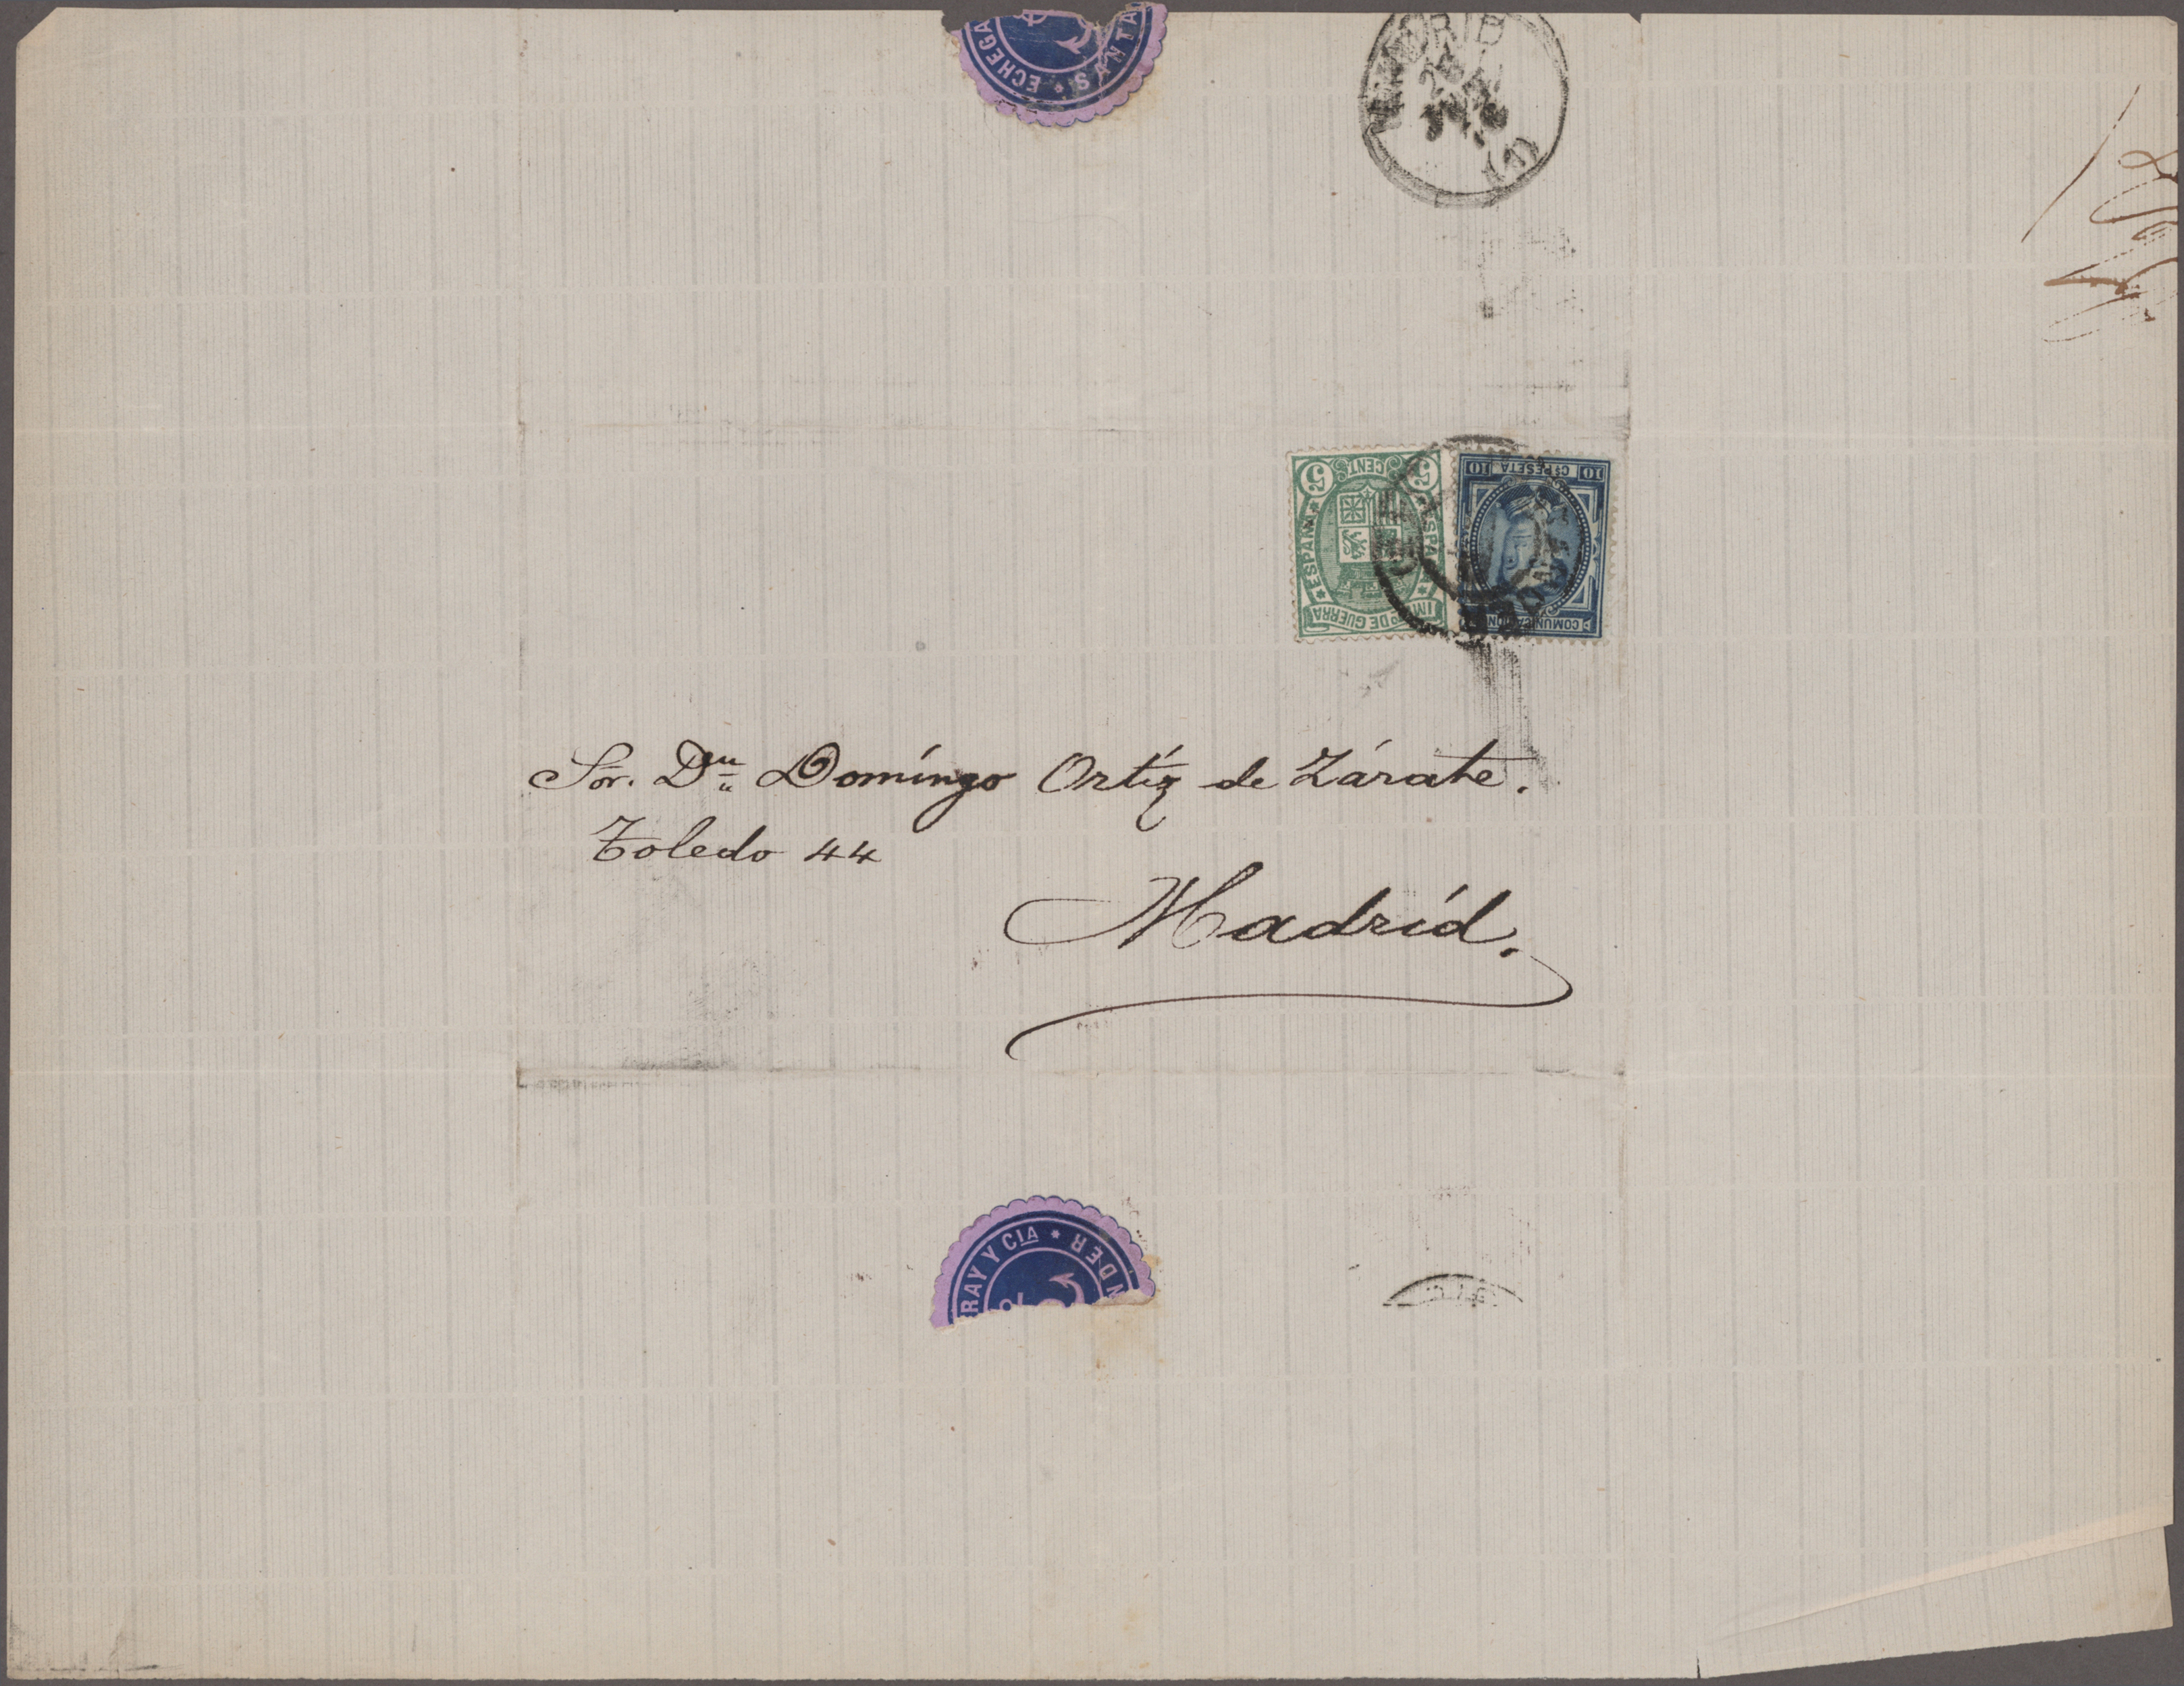 ECHEGA
* SANTA
MADRID
(1)
5 CENT 5
* ESPAÑA *
IMP DE GUERRA
10 Cs PESETA 10
COMUNICACION
Sor. Dn Domingo Ortíz de Zárate.
Toledo 44
Madríd.
RAY Y CIA *
NDER